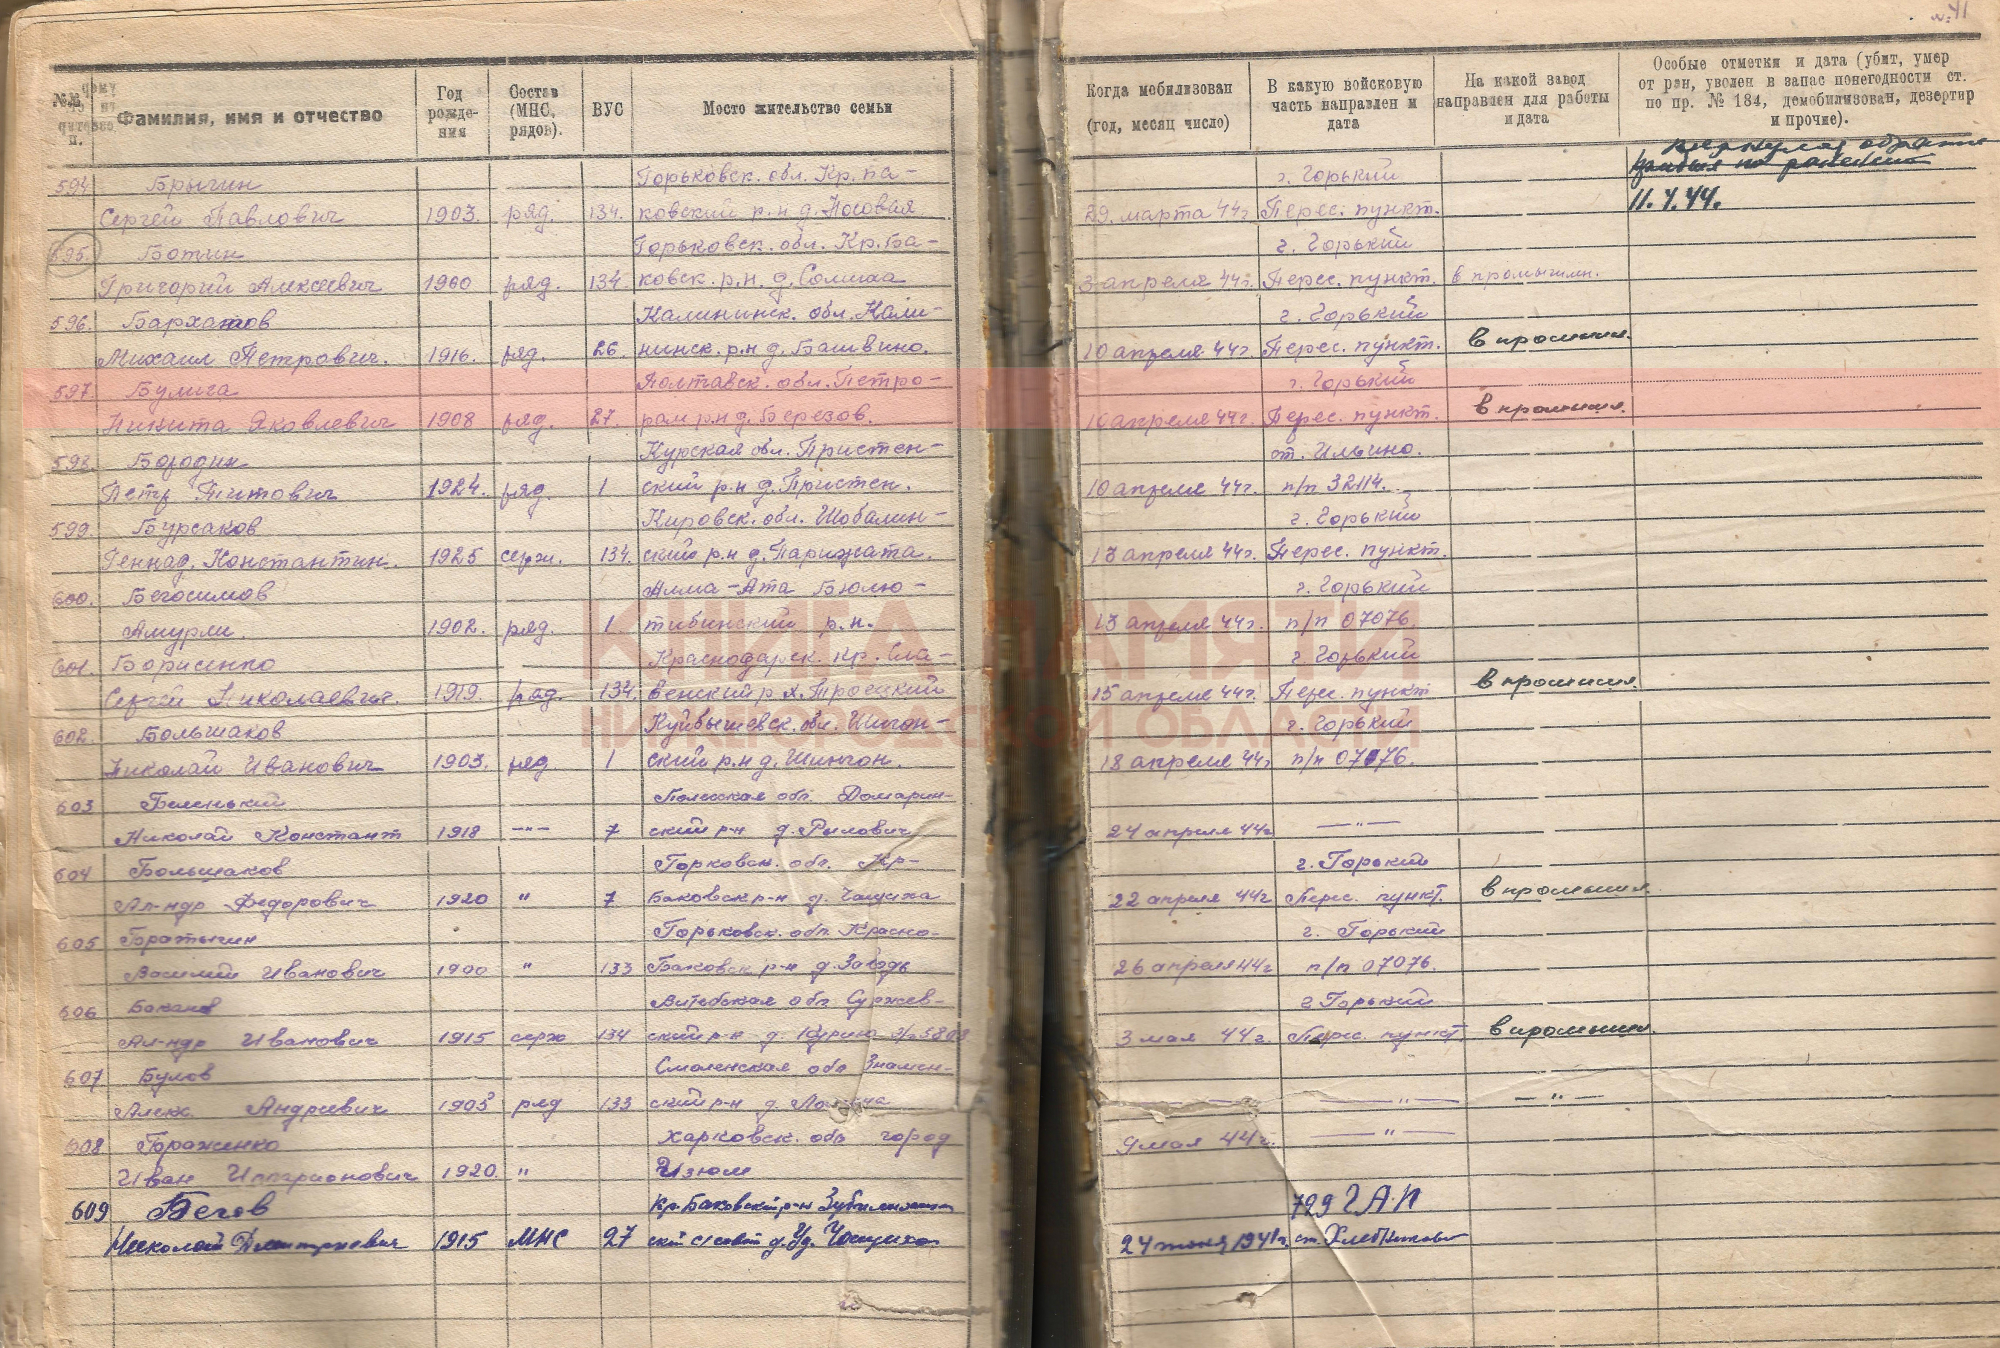 №41
№№ п.
Фамилия, имя и отчество
Год рожде-ния
Состав (МНС, рядов).
ВУС
Место жительство семьи
Когда мобилизован (год, месяц число)
В какую войсковую часть направлен и дата
На какой завод направлен для работы и дата
Особые отметки и дата (убит, умер от ран, уволен в запас понегодности ст. по пр. № 184, демобилизован, дезертир и прочие).
594 Брыгин Горьковск. обл. Кр. ба- г. Горький
Сергей Павлович 1903. ряд. 134. ковский р.н д. Носовая 29. марта 44г. Перес. пункт. 11.4.44.
595. Ботин Горьковск. обл. Кр. Ба- г. Горький
Григорий Алексеевич 1900 ряд. 134. ковск. р.н. д. 3 апреля 44г. Перес. пункт. в промышлн.
596. Бархатов Калининск. обл. Кали- г. Горький
Михаил Петрович. 1916. ряд. 26. нинск. р.н д. Башвино. 10 апреля 44г Перес. пункт. в промышл.
597. Булига Полтавск. обл. Петро- г. Горький
Никита Яковлевич 1908 ряд. 27. рам р.н д. Березов. 10 апреля 44г. Перес. пункт. в промышл.
598. Бородин Курская обл. Пристен- ст. Ильино.
Петр Титович 1924. ряд. 1 ский р.н д. Пристен. 10 апреля 44г. п/п 32114.
599. Бурсаков Кировск. обл. Шабалин- г. Горький
Геннад. Константин. 1925 серж. 134. ский р.н д. 13 апреля 44г. Перес. пункт.
600. Бегосимов Алма-Ата Бюлю- г. Горький
Амурли. 1902. ряд. 1. тибинский р.н. 13 апреля 44г. п/п 07076.
601. Борисенко Краснодарск. кр. Сла- г. Горький
Сергей Николаевич. 1919. ряд. 134. венский р.н. Троецкий 15 апреля 44г. Перес. пункт в промышл.
КНИГА ПАМЯТИ
НИЖЕГОРОДСКОЙ ОБЛАСТИ
602. Большаков Куйбышевск. обл. Шигон- г. Горький
Николай Иванович 1903. ряд 1 ский р.н д. Шингон. 18 апреля 44г п/п 07076.
603 Беленький Полесская обл. Домарин-
Николай Констант 1918 —"— 7 ский р-н д. Рылович 24 апреля 44г —"—
604 Большаков Горковск. обл. Кр- г. Горький
Ал-ндр Федорович 1920 " 7 Баковск р-н д. Чащиха 22 апреля 44г Перес. пункт. в промышл.
605 Горатыгин Горьковск. обл. Красно- г. Горький
Василий Иванович 1900 " 133 Баковск р-н д. Заводь 26 апреля 44г п/п 07076.
606 Баканов Витебская обл Суржев- г Горький
Ал-ндр Иванович 1915 серж 134 ский р-н д. 3 мая 44г. Перес. пункт. в промышл.
607 Булов Смоленская обл Знамен-
Алекс. Андреевич 1905 ряд 133 ский р-н д. —"— —"—
608 Гораженко Харковск. обл город 9 мая 44г. —"—
Иван Илларионович 1920. " Изюм
609 Бегов Кр-Баковский р-н 729 ГАП
Николай Дмитриевич 1915 МНС 27 ский с/совет д. Уд. Чащиха 24 июня 1941г. ст. Хлебниково